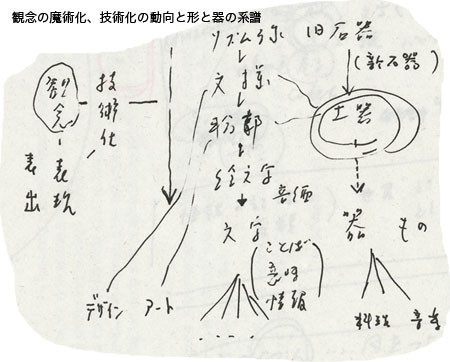 観念の魔術化、技術化の動向と形と器の系譜
リズム
旧石器
(新石器)
文様
土器
輪郭
観念
技術化
表現
表出
絵文字
文字
器 もの
(ことば
意味
情報)
デザイン アート
料理
・・・・